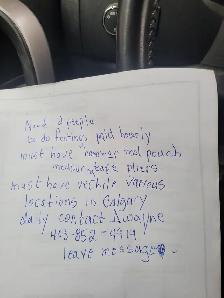 Need 2 people
to do fencing paid hourly
must have hammer and pouch
measuring tape pliers
must have vechile various
locations in Calgary
daily contact Dwayne
403-852-9914
leave message